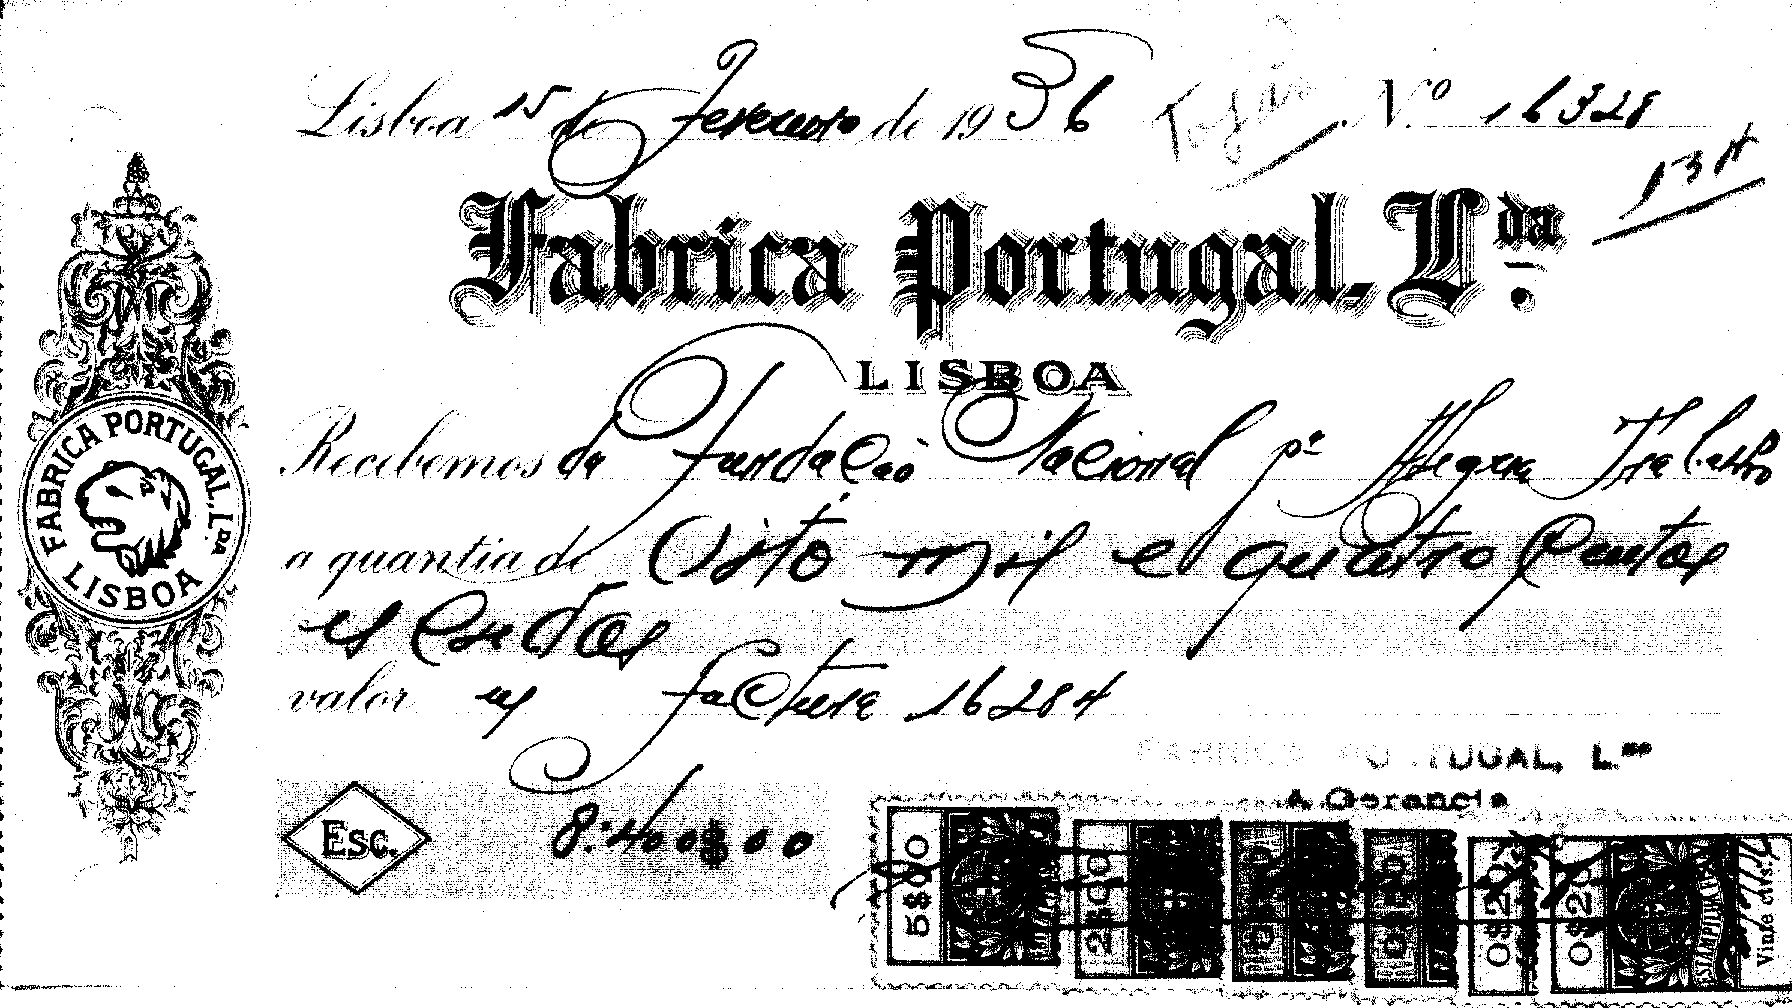 Lisboa 15 de Fevereiro de 1936 Nº 16328
134
Fabrica Portugal, Lda.
LISBOA
FABRICA PORTUGAL, LDA
LISBOA
Recebemos da Fundação Nacional pª Alegria Trabalho
a quantia de Oito mil e quatrocentos
escudos
valor n/ factura 16284
FABRICA PORTUGAL, LDA
A Gerencia
ESC. 8.400$00
5$00
2$00
0$20
0$20